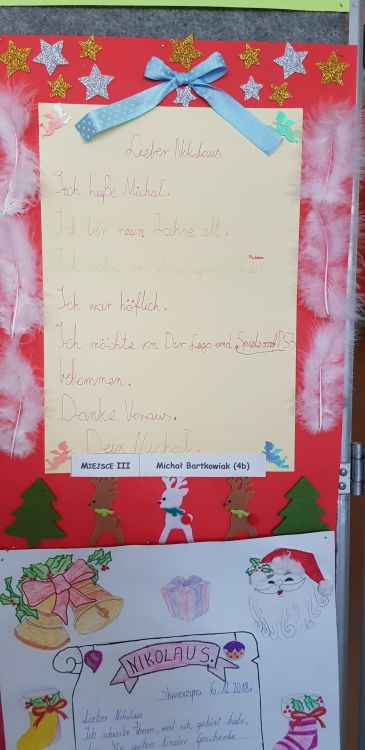 Lieber Nikolaus
Ich heiße Michał.
Ich bin neun Jahre alt.
Ich wohne in Skwierzyna in Polen
Ich war höflich.
Ich möchte von Dir Lego und Spiele PS3
bekommen.
Danke Voraus.
Dein Michał.
MIEJSCE III Michał Bartkowiak (4b)
NIKOLAUS.
Skwierzyna 6.12.2018r.
Lieber Nikolaus
Ich schreibe Ihnen, weil ich gehört habe,
Sie guten Kinder Geschenke